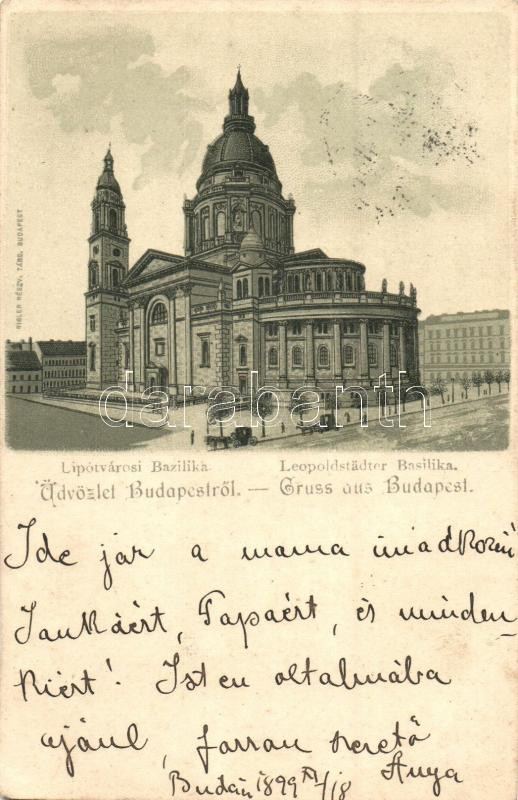 RIGLER RÉSZV. TÁRS. BUDAPEST
darabanth
Lipótvárosi Bazilika. Leopoldstädter Basilika.
Üdvözlet Budapestről. — Gruss aus Budapest.
Ide jár a mama imádkozni
Jankáért, Papáért, és minden-
kiért! Isten oltalmába
ajánl, forrón szerető
Budán 1899 XI/18 Anya